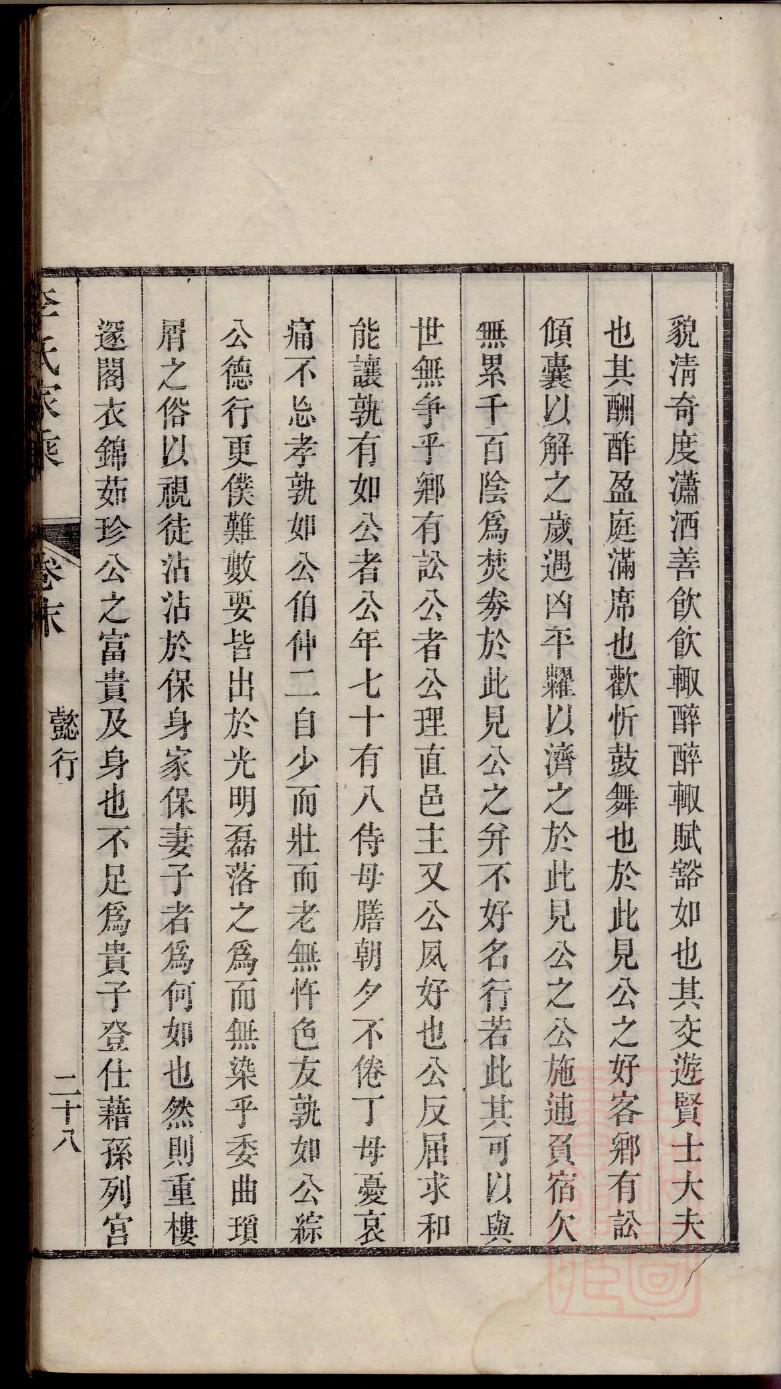 貌淸奇度瀟洒善飮飮輙醉醉輙賦豁如也其交遊賢士大夫
也其酬酢盈庭滿席也歡忻鼓舞也於此見公之好客鄉有訟
傾囊以解之歲遇凶平糶以濟之於此見公之公施逋負宿欠
無累千百陰爲焚券於此見公之弁不好名行若此其可以與
世無爭乎鄉有訟公者公理直邑主又公夙好也公反屈求和
能讓孰有如公者公年七十有八侍母膳朝夕不倦丁母憂哀
痛不忘孝孰如公伯仲二自少而壯而老無忤色友孰如公綜
公德行更僕難數要皆出於光明磊落之爲而無染乎委曲瑣
屑之俗以視徒沾沾於保身家保妻子者爲何如也然則重樓
邃閣衣錦茹珍公之富貴及身也不足爲貴子登仕藉孫列宮
李氏家乘
卷末
懿行
二十八